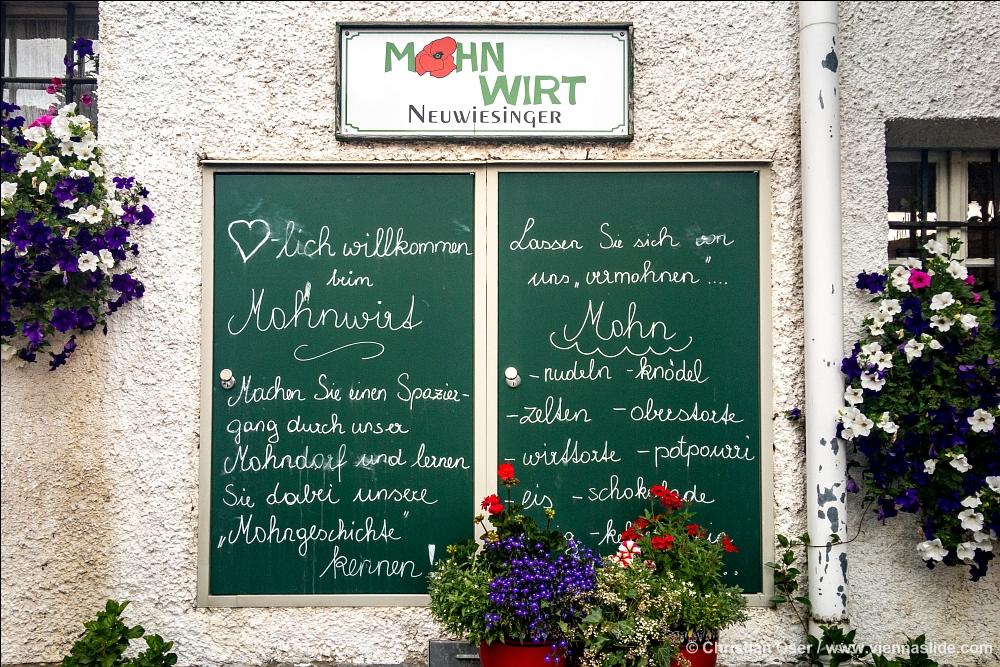 MOHN
WIRT
NEUWIESINGER
♡-lich willkommen
beim
Mohnwirt
Machen Sie einen Spazier-
gang durch unser
Mohndorf und lernen
Sie dabei unsere
„Mohngeschichte"
kennen!
Lassen Sie sich von
uns „vermohnen"....
Mohn
-nudeln -knödel
-zelten -oberstorte
-wirttorte -potpourri
-eis -schokolade
© Christian Oser / www.viennaslide.com